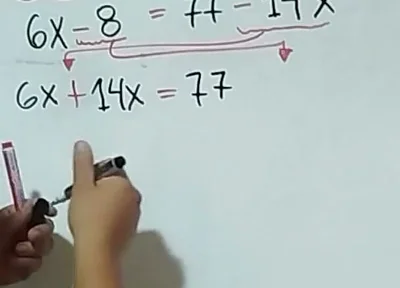 6x - 8 = 77 - 14x
6x + 14x = 77